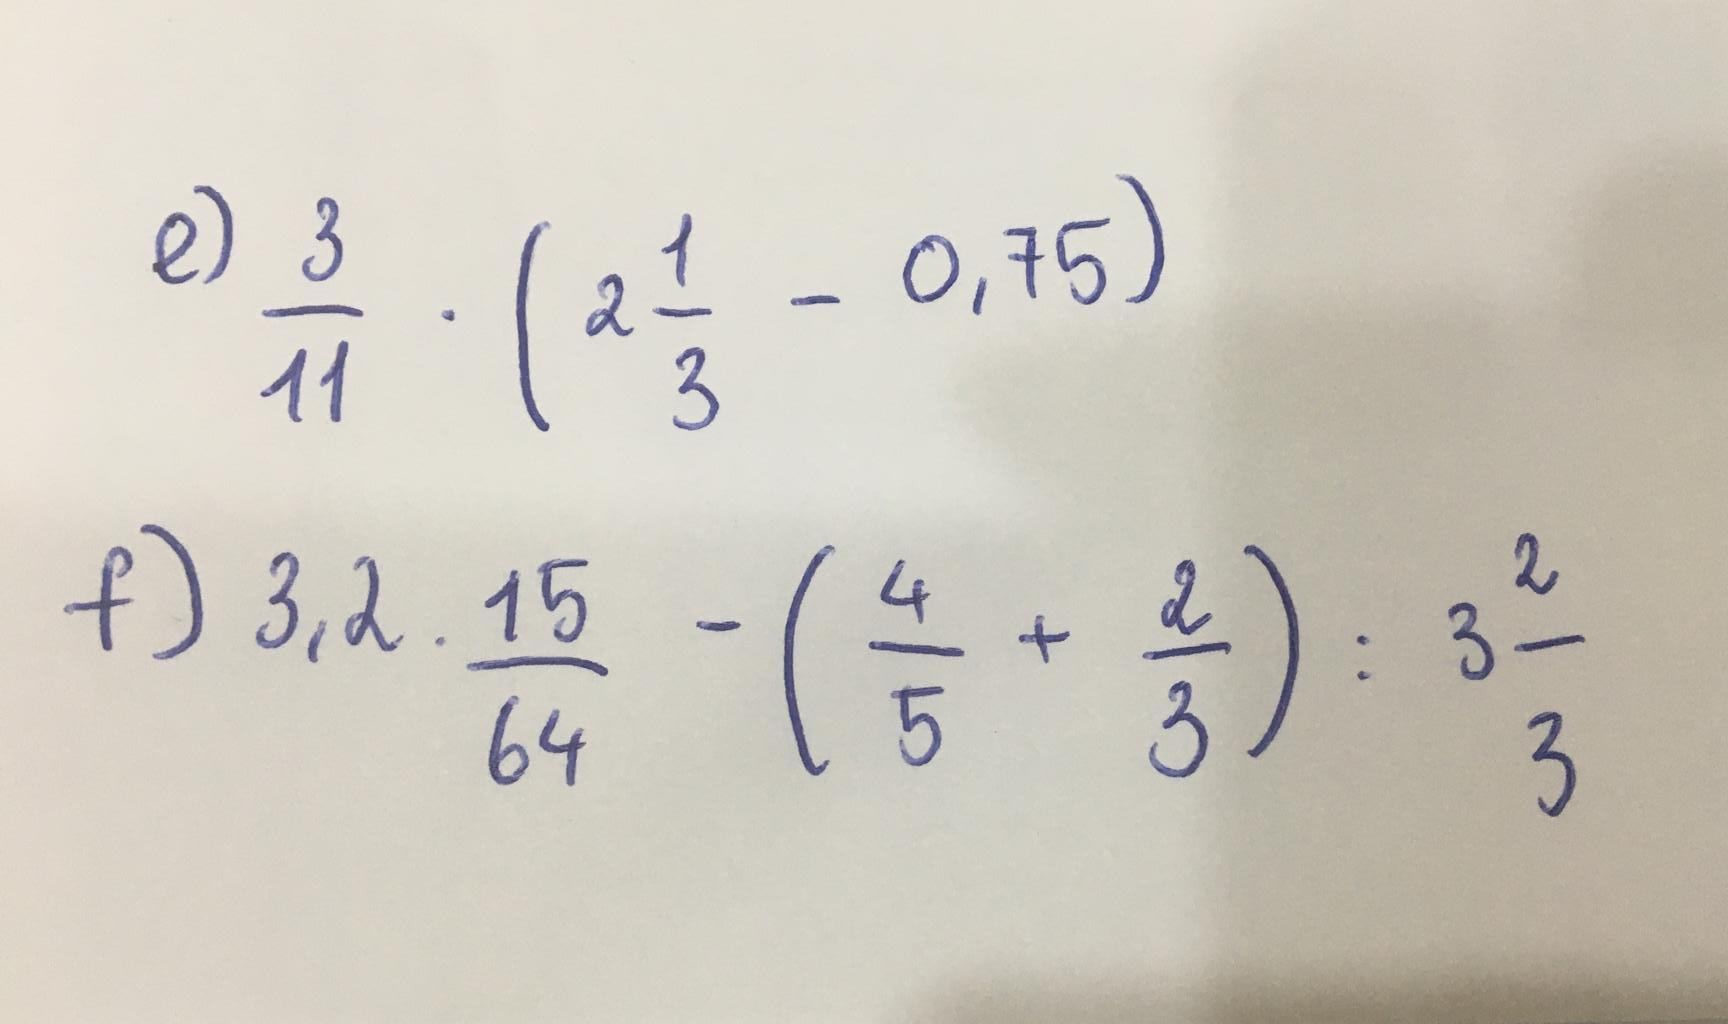 e) 3/11 · (2 1/3 - 0,75)
f) 3,2 · 15/64 - (4/5 + 2/3) : 3 2/3